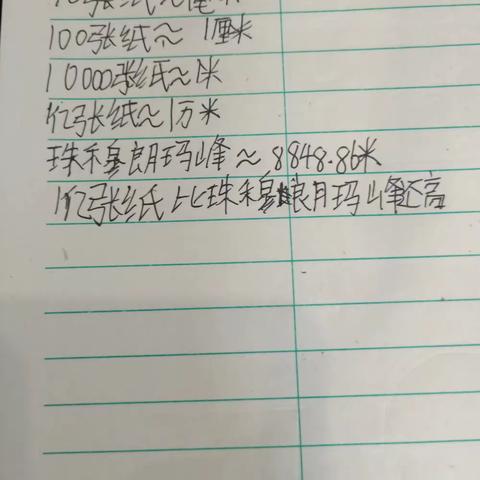 10张纸≈1毫米
100张纸≈1厘米
10000张纸≈1米
1亿张纸≈1万米
珠穆朗玛峰≈8848.86米
1亿张纸比珠穆朗玛峰还高